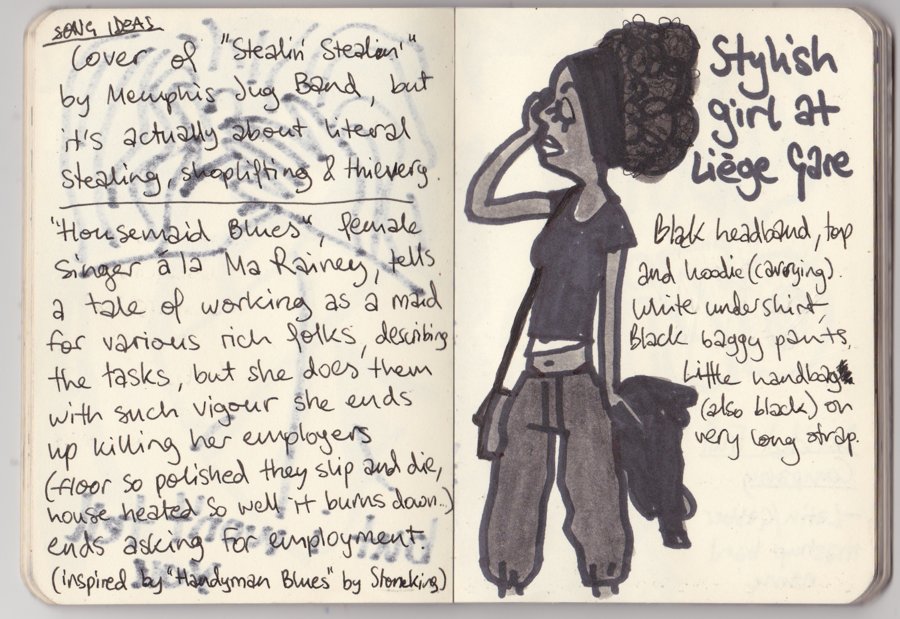 SONG IDEAS
Cover of "Stealin' Stealin'"
by Memphis Jug Band, but
it's actually about literal
stealing, shoplifting & thievery.
"Housemaid Blues", female
singer à la Ma Rainey, tells
a tale of working as a maid
for various rich folks, describing
the tasks, but she does them
with such vigour she ends
up killing her employers
(floor so polished they slip and die,
house heated so well it burns down..)
ends asking for employment.
(inspired by "Handyman Blues" by Stoneking)
Stylish
girl at
Liège Gare
Black headband, top
and hoodie (carrying).
White undershirt,
Black baggy pants,
Little handbag
(also black) on
very long strap.